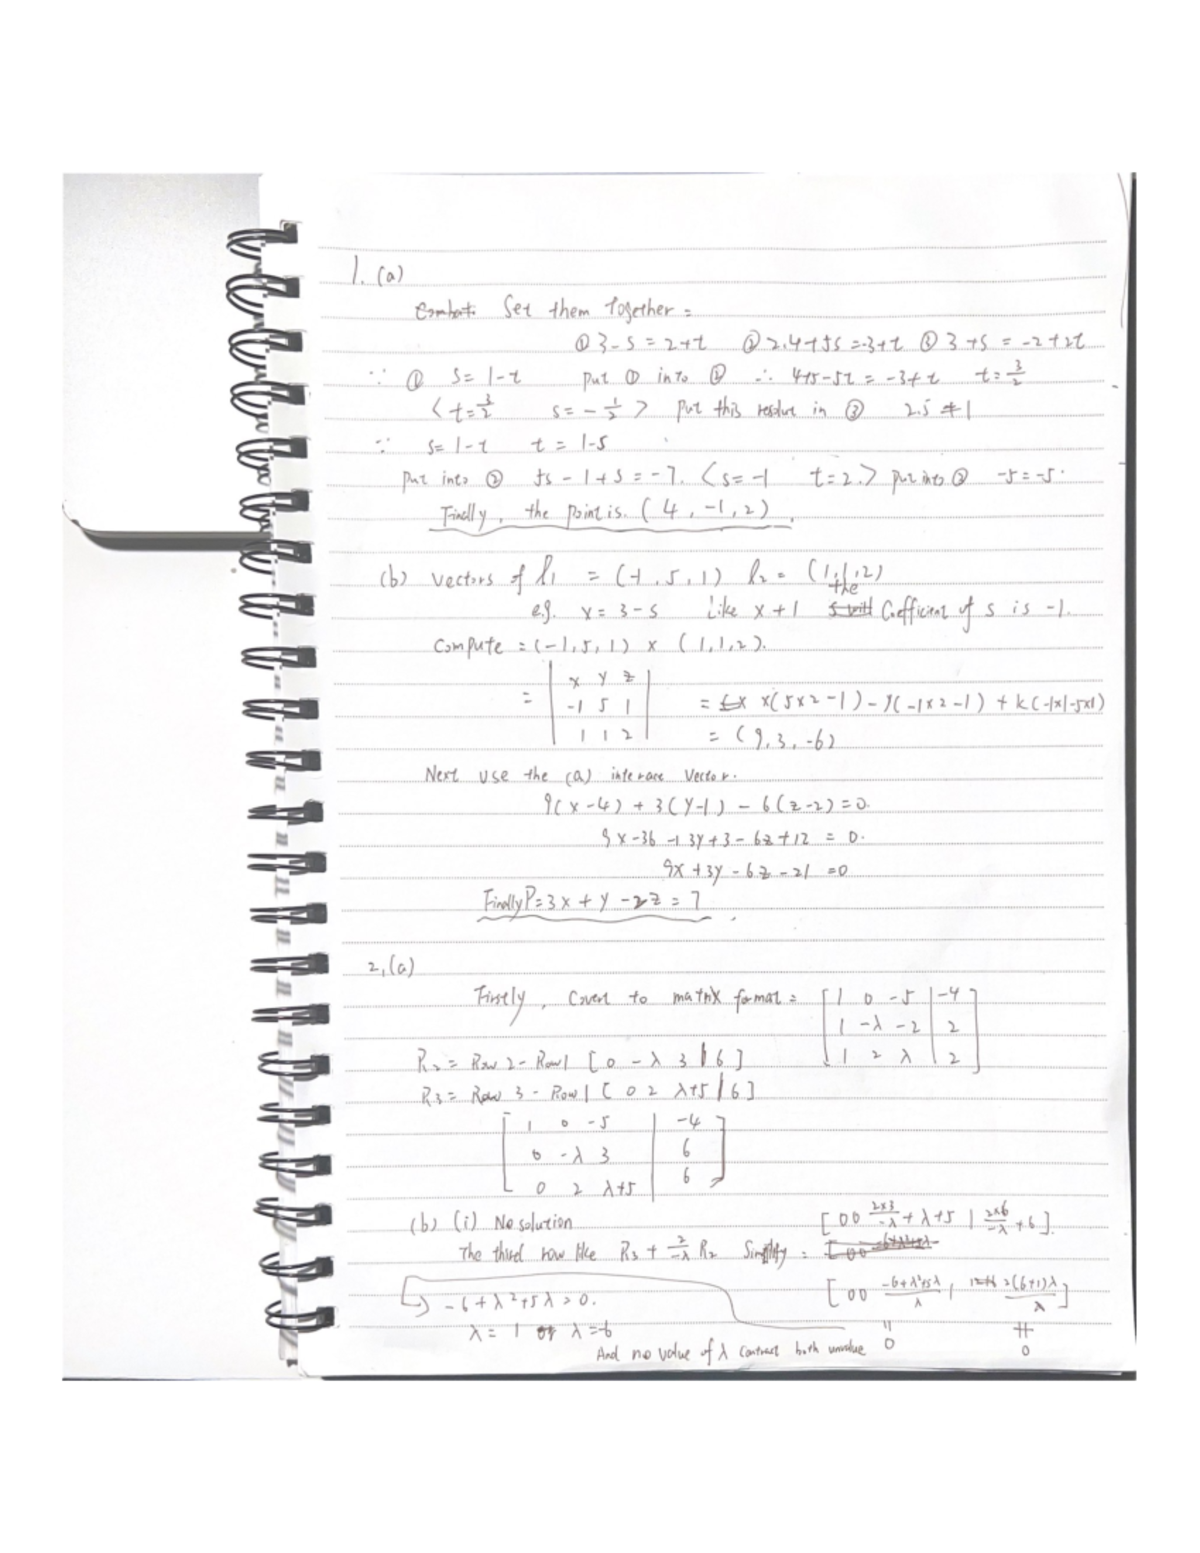 1. (a)
Set them together =
① 3-s = 2+t ② 2.4+5s = -3+t ③ 3+s = -2+2t
∵ ① s = 1-t put ① into ② ∴ 4+5-5t = -3+t t = 3/2
< t = 3/2 s = -1/2 > put this resolut in ③ 2.5 ≠ 1
∵ s = 1-t t = 1-s
put into ② 5s - 1 + s = -7. < s = -1 t = 2. > put into ② -5 = -5.
Finally, the point is. (4, -1, 2).
(b) vectors of l₁ = (-1, 5, 1) l₂ = (1, 1, 2)
the
e.g. x = 3-s Like x+1 Coefficient of s is -1.
Compute = (-1, 5, 1) x (1, 1, 2).
x y z
= -1 5 1 = x(5x2-1) - y(-1x2-1) + k(-1x1-5x1)
1 1 2 = (9, 3, -6)
Next use the (a) vector.
9(x-4) + 3(y-1) - 6(z-2) = 0.
9x-36 + 3y+3 - 6z+12 = 0.
9x + 3y - 6z - 21 = 0
Finally P = 3x + y - 2z = 7.
2, (a)
Firstly, Covert to matrix format = [ 1 0 -5 | -4
1 -λ -2 | 2
1 2 λ | 2 ]
R₂ = Row 2 - Row 1 [ 0 -λ 3 | 6 ]
R3 = Row 3 - Row 1 [ 0 2 λ+5 | 6 ]
[ 1 0 -5 | -4
0 -λ 3 | 6
0 2 λ+5 | 6 ]
(b) (i) No solution [ 0 0 2x3/-λ + λ+5 | 2x6/-λ + 6 ].
The third row like R3 + 2/-λ R₂ Simplify =
[ 0 0 -6+λ²+5λ/λ | 2(6+1)λ/λ ]
-6 + λ² + 5λ = 0.
λ = 1 λ = -6
And no value of λ both 0 0